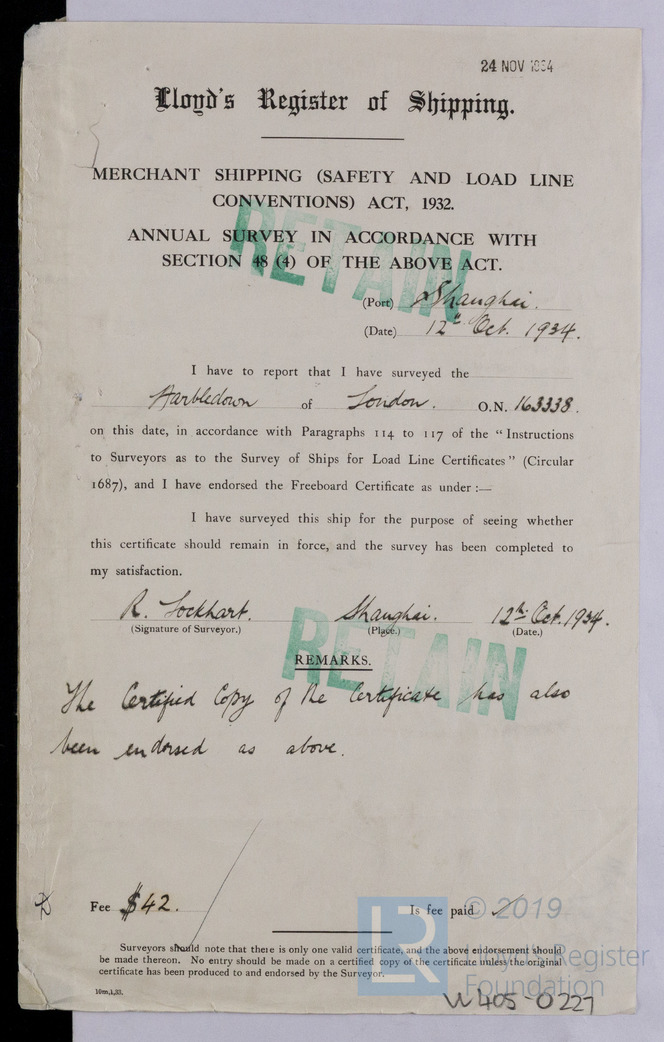 24 NOV 1934
Lloyd's Register of Shipping.
MERCHANT SHIPPING (SAFETY AND LOAD LINE
CONVENTIONS) ACT, 1932.
ANNUAL SURVEY IN ACCORDANCE WITH
SECTION 48 (4) OF THE ABOVE ACT.
RETAIN
(Port) Shanghai.
(Date) 12th Oct. 1934.
I have to report that I have surveyed the
Harbledown of London. O.N. 163338.
on this date, in accordance with Paragraphs 114 to 117 of the "Instructions
to Surveyors as to the Survey of Ships for Load Line Certificates" (Circular
1687), and I have endorsed the Freeboard Certificate as under :—
I have surveyed this ship for the purpose of seeing whether
this certificate should remain in force, and the survey has been completed to
my satisfaction.
R. Lockhart. Shanghai. 12th Oct. 1934.
(Signature of Surveyor.) (Place.) (Date.)
RETAIN
REMARKS.
The Certified Copy of the Certificate has also
been endorsed as above.
Fee $42. Is fee paid ✓
© 2019
Surveyors should note that there is only one valid certificate, and the above endorsement should
be made thereon. No entry should be made on a certified copy of the certificate unless the original
certificate has been produced to and endorsed by the Surveyor.
LR
Lloyd's Register
Foundation
10m,1,33.
W405-0227